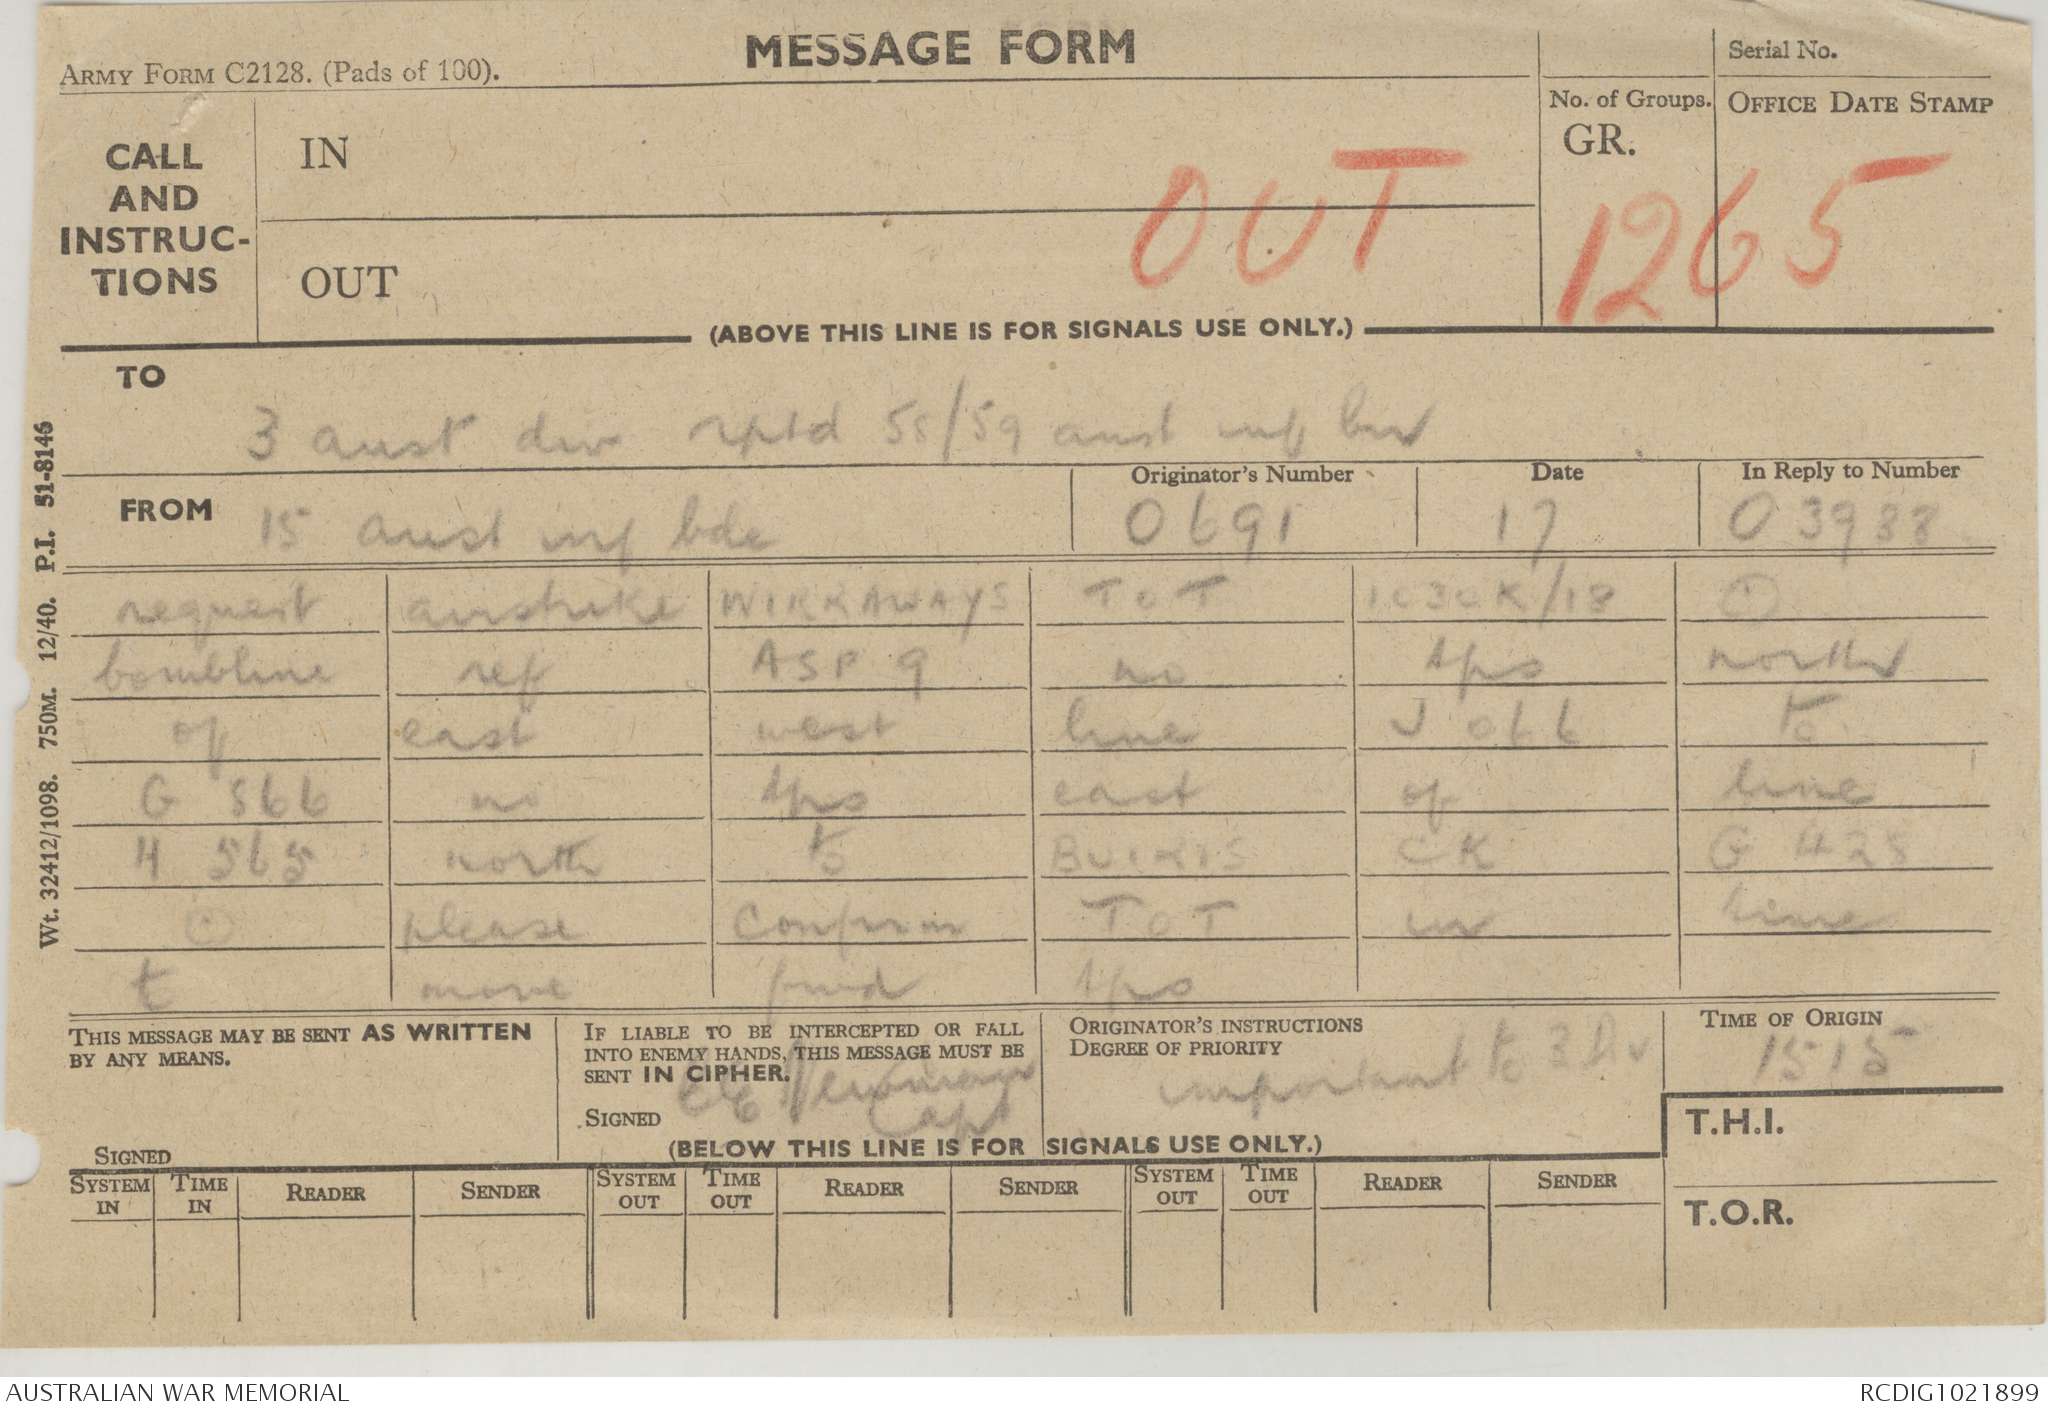 MESSAGE FORM
ARMY FORM C2128. (Pads of 100).
Serial No.
No. of Groups.
GR.
OFFICE DATE STAMP
CALL
AND
INSTRUC-
TIONS
IN
OUT
OUT
1265
(ABOVE THIS LINE IS FOR SIGNALS USE ONLY.)
TO
3 aust div rptd 58/59 aust inf bn
FROM
15 aust inf bde
Originator's Number
0691
Date
17
In Reply to Number
03988
request airstrike WIRRAWAYS TOT 1030K/18 ⊙
bombline ref ASP 9 no tps north
of east west line J 066 to
G 566 no tps east of line
H 565 north to BUIRIS CK G 428
⊙ please confirm TOT in time
t move fwd tps
THIS MESSAGE MAY BE SENT AS WRITTEN
BY ANY MEANS.
SIGNED
IF LIABLE TO BE INTERCEPTED OR FALL
INTO ENEMY HANDS, THIS MESSAGE MUST BE
SENT IN CIPHER.
SIGNED
Capt
ORIGINATOR'S INSTRUCTIONS
DEGREE OF PRIORITY
important to 3 Div
TIME OF ORIGIN
1515
T.H.I.
T.O.R.
(BELOW THIS LINE IS FOR SIGNALS USE ONLY.)
SYSTEM IN TIME IN READER SENDER SYSTEM OUT TIME OUT READER SENDER SYSTEM OUT TIME OUT READER SENDER
Wt. 32412/1098. 750M. 12/40. P.I. 51-8146
AUSTRALIAN WAR MEMORIAL
RCDIG1021899